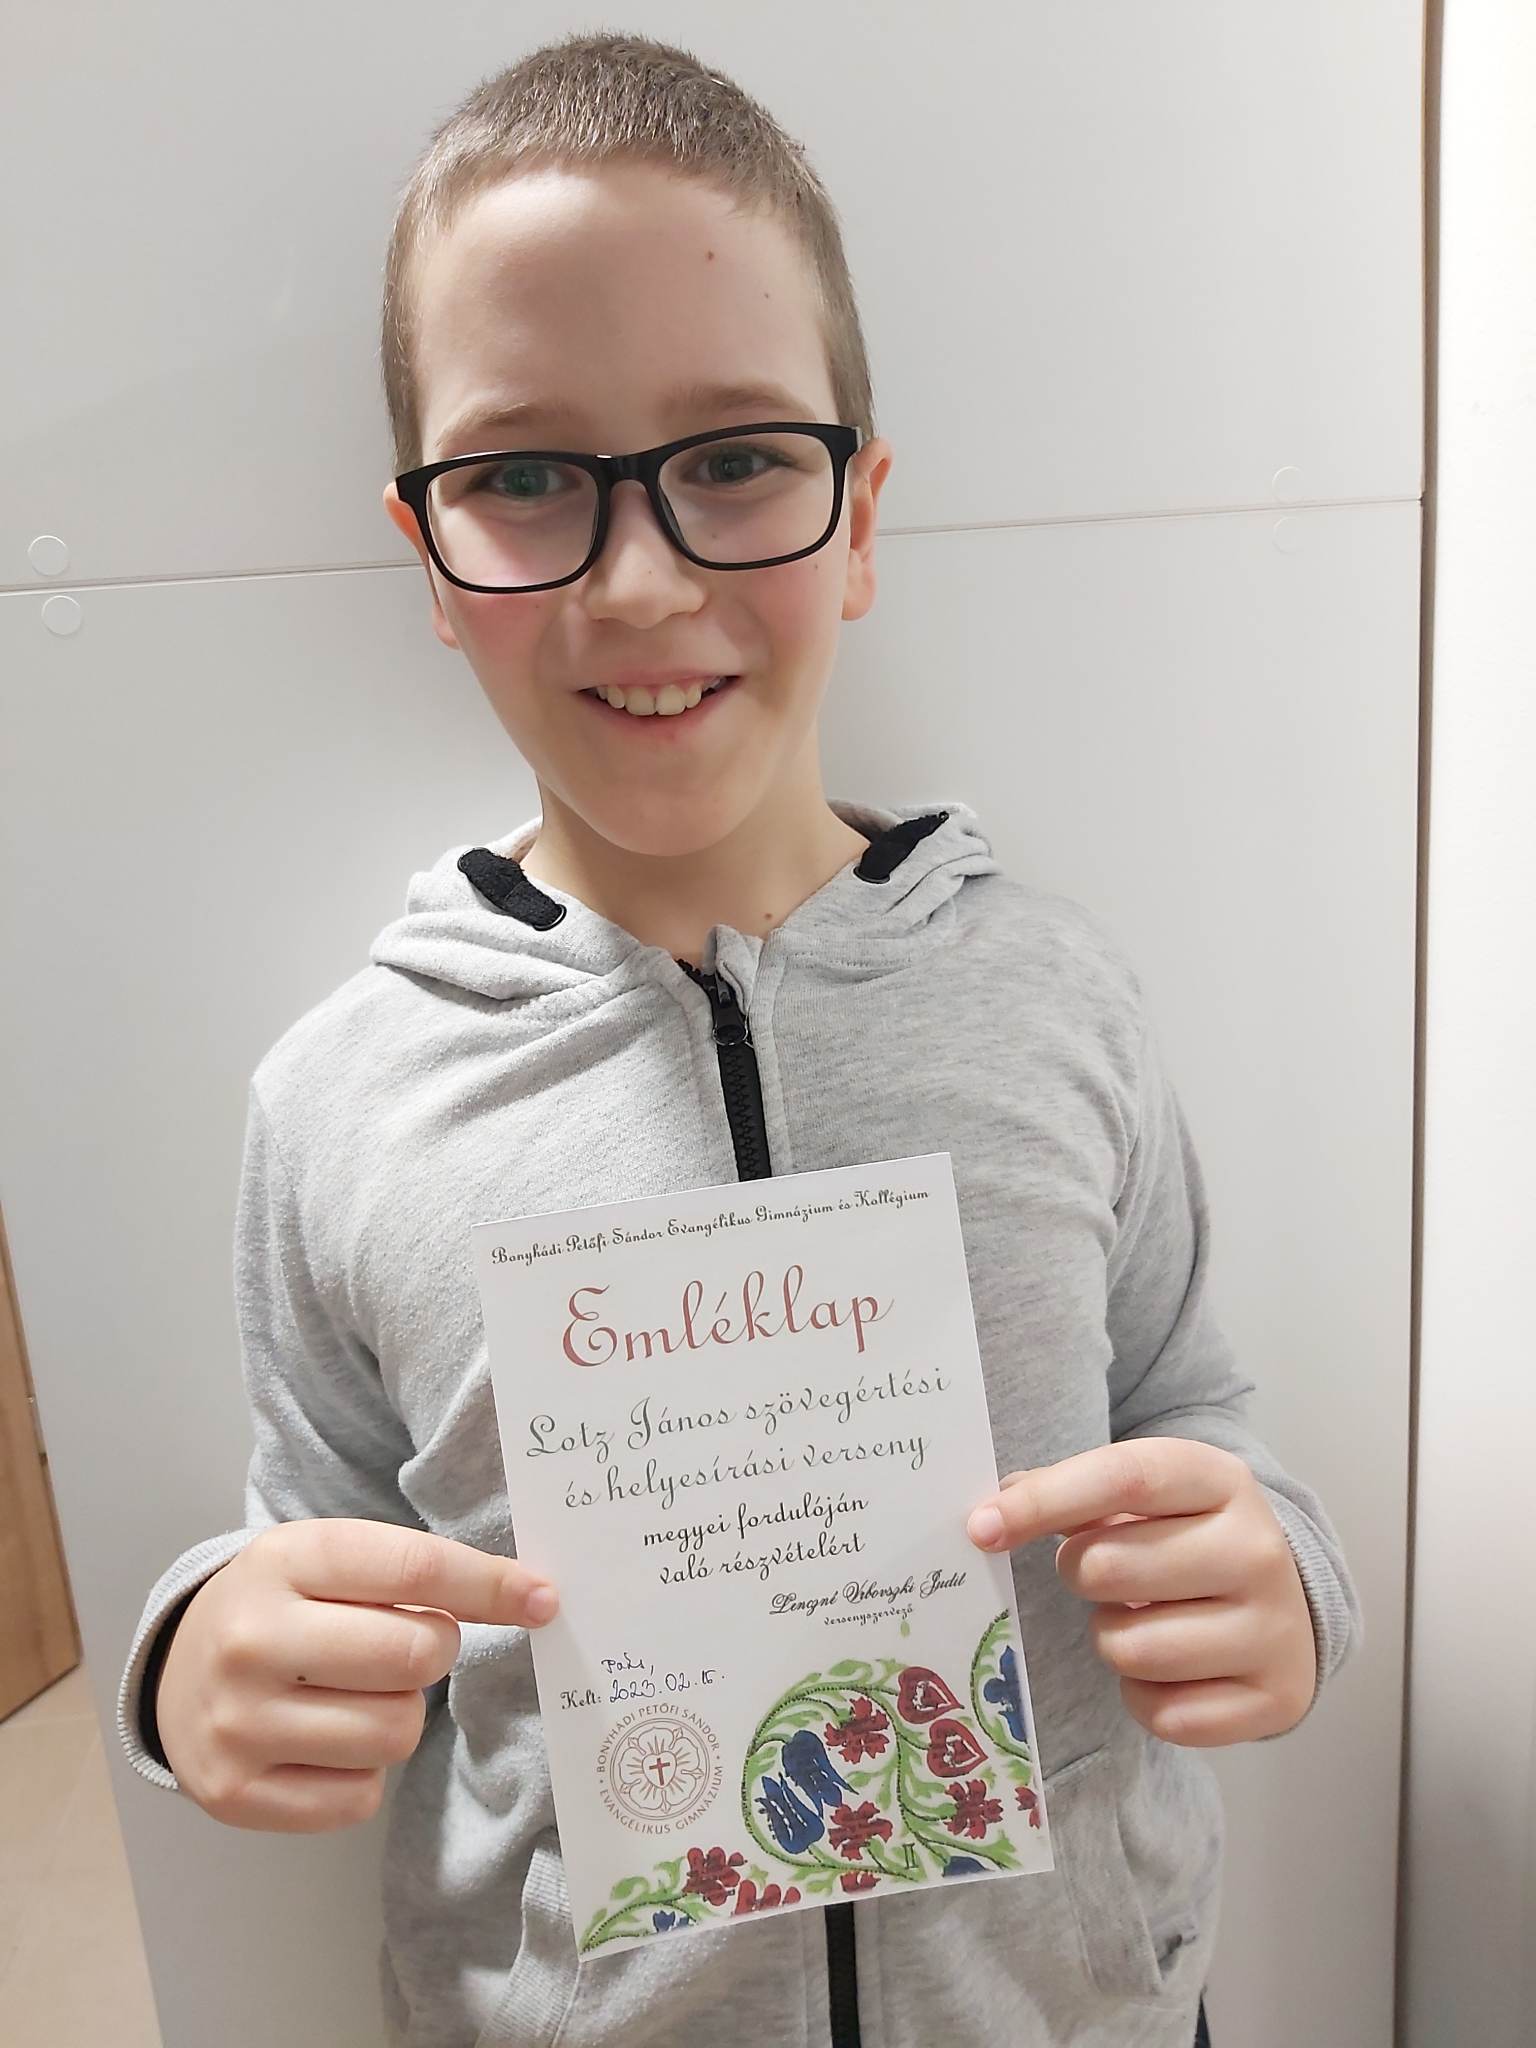 Bonyhádi Petőfi Sándor Evangélikus Gimnázium és Kollégium
Emléklap
Lotz János szövegértési
és helyesírási verseny
megyei fordulóján
való részvételért
Lenczné Vrbovszki Judit
versenyszervező
Paks,
Kelt: 2023. 02. 16.
BONYHÁDI PETŐFI SÁNDOR
EVANGÉLIKUS GIMNÁZIUM